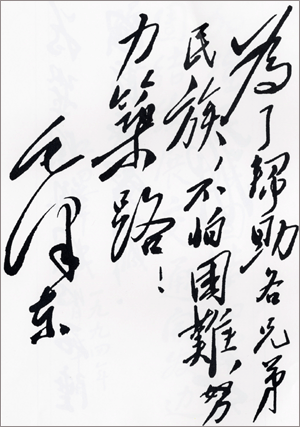 为了帮助各兄弟
民族，不怕困難，努
力築路！
毛澤东